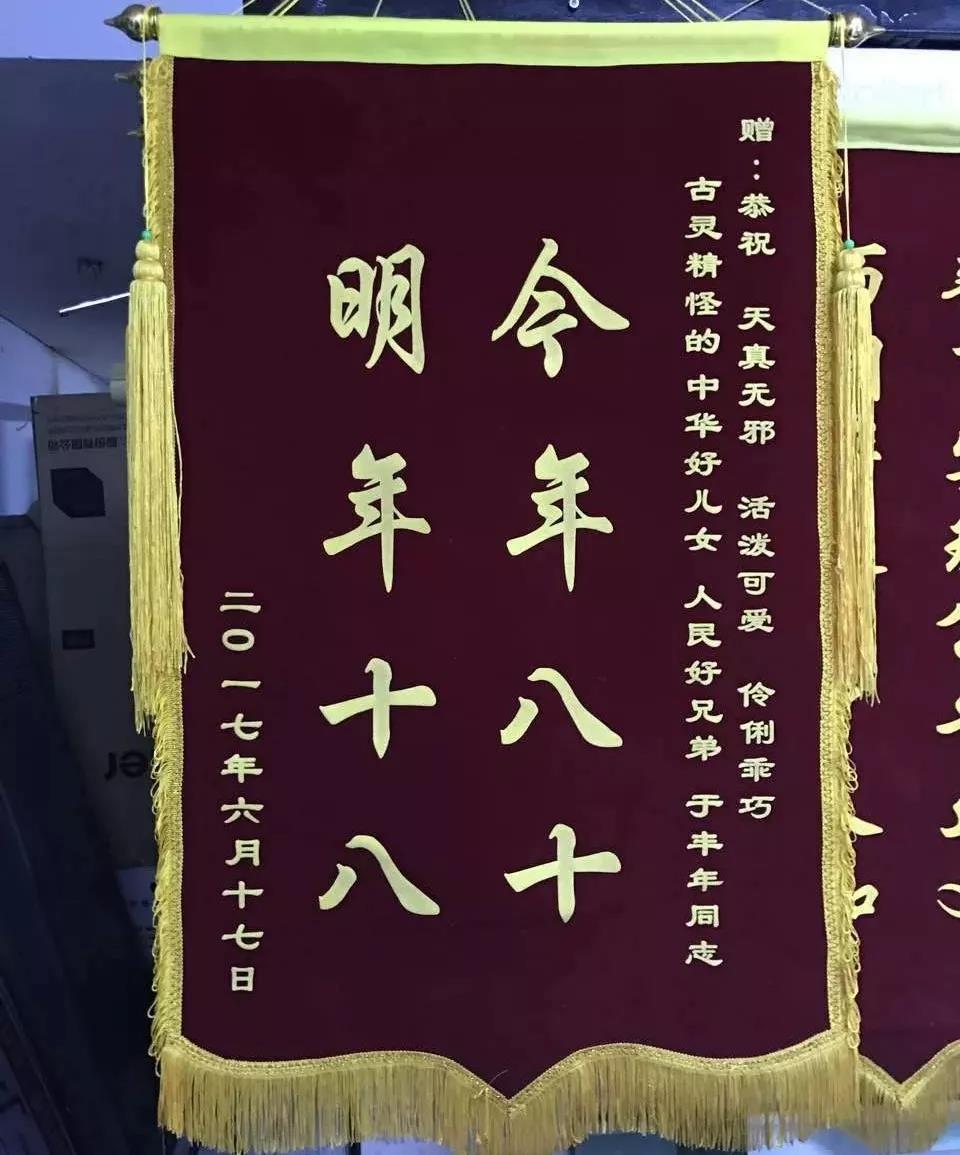 赠：恭祝 天真无邪 活泼可爱 伶俐乖巧
古灵精怪的中华好儿女 人民好兄弟 于丰年同志
今年八十
明年十八
二〇一七年六月十七日
股份有限公司